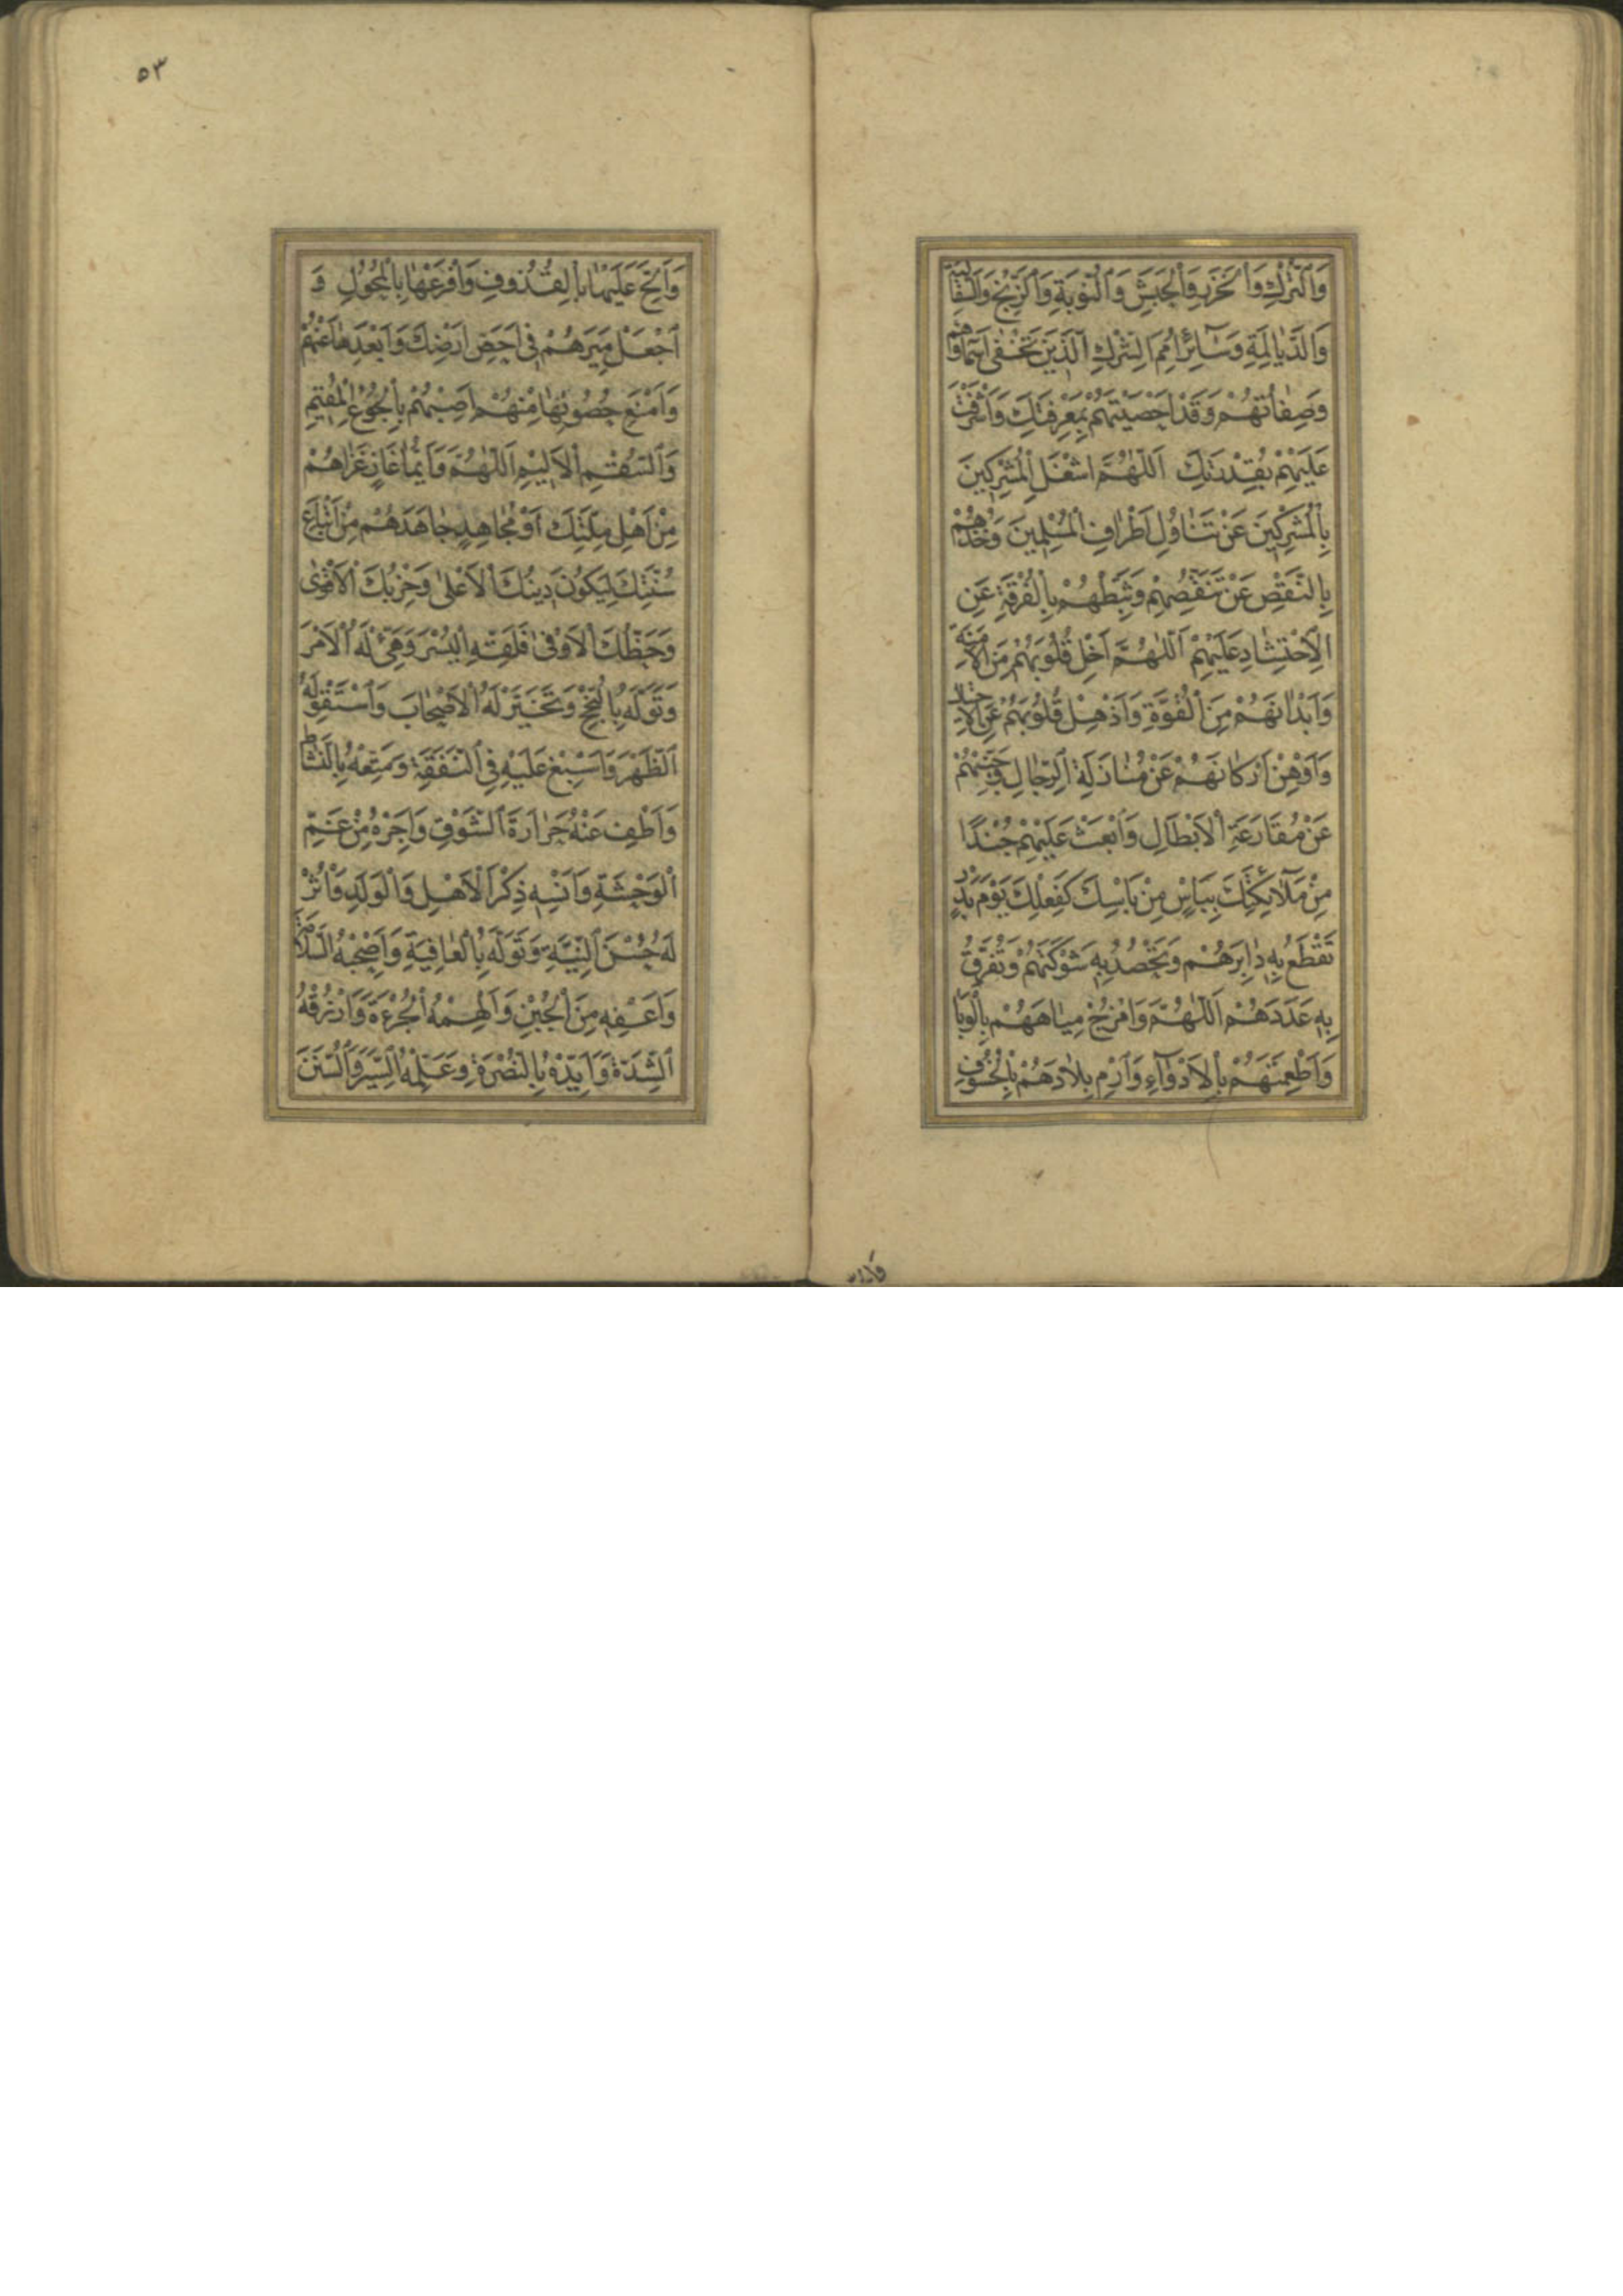 وَالتُّرْكِ وَالْخَزَرِ وَالْحَبَشِ وَالنُّوبَةِ وَالزَّنْجِ وَالسَّقَالِبَةِ
وَالدَّيَالِمَةِ وَسَآئِرِ اُمَمِ الشِّرْكِ الَّذِينَ تَخْفٰى اَسْمَاؤُهُمْ
وَصِفَاتُهُمْ وَقَدْ اَحْصَيْتَهُمْ بِمَعْرِفَتِكَ وَاَشْرَفْتَ
عَلَيْهِمْ بِقُدْرَتِكَ اَللّٰهُمَّ اشْغَلِ الْمُشْرِكِينَ
بِالْمُشْرِكِينَ عَنْ تَنَاوُلِ اَطْرَافِ الْمُسْلِمِينَ وَخُذْهُمْ
بِالنَّقْصِ عَنْ تَنَقُّصِهِمْ وَثَبِّطْهُمْ بِالْفُرْقَةِ عَنِ
الْاِحْتِشَادِ عَلَيْهِمْ اَللّٰهُمَّ اَخْلِ قُلُوبَهُمْ مِنَ الْاَمَنَةِ
وَاَبْدَانَهُمْ مِنَ الْقُوَّةِ وَاَذْهِلْ قُلُوبَهُمْ عَنِ الْاِحْتِيَالِ
وَاَوْهِنْ اَرْكَانَهُمْ عَنْ مُنَازَلَةِ الرِّجَالِ وَجَبِّنْهُمْ
عَنْ مُقَارَعَةِ الْاَبْطَالِ وَابْعَثْ عَلَيْهِمْ جُنْدًا
مِنْ مَلٰٓائِكَتِكَ بِبَاْسٍ مِنْ بَاْسِكَ كَفِعْلِكَ يَوْمَ بَدْرٍ
تَقْطَعُ بِهِ دَابِرَهُمْ وَتَحْصُدُ بِهِ شَوْكَتَهُمْ وَتُفَرِّقُ
بِهِ عَدَدَهُمْ اَللّٰهُمَّ وَامْزُجْ مِيَاهَهُمْ بِالْوَبَاءِ
وَاَطْعِمَتَهُمْ بِالْاَدْوَآءِ وَارْمِ بِلَادَهُمْ بِالْخُسُوفِ
٥٣
وَاَلِحَّ عَلَيْهَا بِالْقُذُوفِ وَافْرَعْهَا بِالْمُحُولِ وَ
اجْعَلْ مِيَرَهُمْ فِي اَحَصِّ اَرْضِكَ وَاَبْعَدِهَا عَنْهُمْ
وَامْنَعْ حُصُونَهَا مِنْهُمْ اَصِبْهُمْ بِالْجُوعِ الْمُقِيمِ
وَالسُّقْمِ الْاَلِيمِ اَللّٰهُمَّ وَاَيُّمَا غَازٍ غَزَاهُمْ
مِنْ اَهْلِ مِلَّتِكَ اَوْ مُجَاهِدٍ جَاهَدَهُمْ مِنْ اَتْبَاعِ
سُنَّتِكَ لِيَكُونَ دِينُكَ الْاَعْلٰى وَحِزْبُكَ الْاَقْوٰى
وَحَظُّكَ الْاَوْفٰى فَلَقِّهِ الْيُسْرَ وَهَيِّئْ لَهُ الْاَمْرَ
وَتَوَلَّهُ بِالنُّجْحِ وَتَخَيَّرْ لَهُ الْاَصْحَابَ وَاسْتَقْوِ لَهُ
الظَّهْرَ وَاَسْبِغْ عَلَيْهِ فِي النَّفَقَةِ وَمَتِّعْهُ بِالنَّشَاطِ
وَاَطْفِ عَنْهُ حَرَارَةَ الشَّوْقِ وَاَجِرْهُ مِنْ غَمِّ
الْوَحْشَةِ وَاَنْسِهِ ذِكْرَ الْاَهْلِ وَالْوَلَدِ وَأْثُرْ
لَهُ حُسْنَ النِّيَّةِ وَتَوَلَّهُ بِالْعَافِيَةِ وَاَصْحِبْهُ السَّلَامَةَ
وَاَعْفِهِ مِنَ الْجُبْنِ وَاَلْهِمْهُ الْجُرْءَةَ وَارْزُقْهُ
الشِّدَّةَ وَاَيِّدْهُ بِالنُّصْرَةِ وَعَلِّمْهُ السِّيَرَ وَالسُّنَنَ